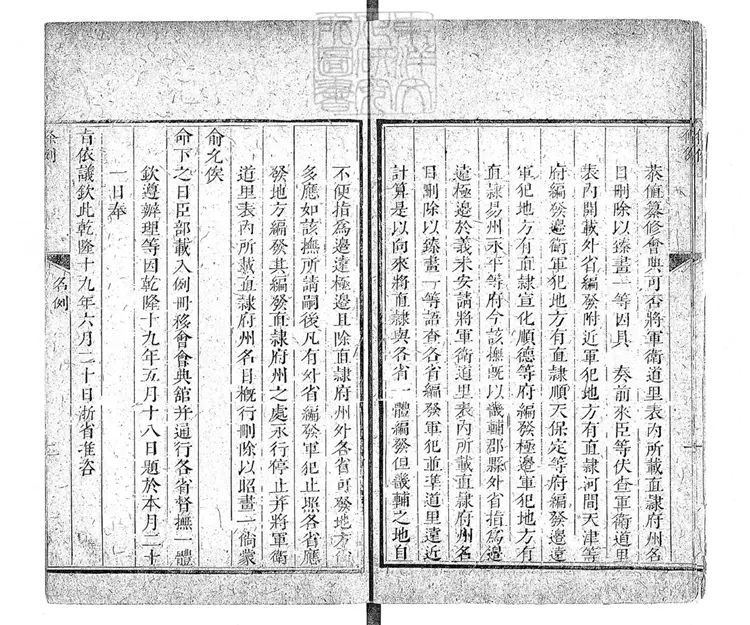 恭值纂修會典可否將軍衛道里表內所載直隸府州名
目刪除以臻畫一等因具 奏前來臣等伏查軍衛道里
表內開載外省編發附近軍犯地方有直隸河間天津等
府編發邊衛軍犯地方有直隸順天保定等府編發邊遠
軍犯地方有直隸宣化順德等府編發極邊軍犯地方有
直隸易州永平等府今該撫既以畿輔郡縣外省指爲邊
遠極邊於義未安請將軍衛道里表內所載直隸府州名
目刪除以臻畫一等語查各省編發軍犯並準道里遠近
計算是以向來將直隸與各省一體編發但畿輔之地自
不便指爲邊遠極邊且除直隸府州外各省可發地方
多應如該撫所請嗣後凡有外省編發軍犯止照各省應
發地方編發其編發直隸府州之處永行停止并將軍衛
道里表內所載直隸府州名目概行刪除以昭畫一倘蒙
俞允俟
命下之日臣部載入例冊移會會典館并通行各省督撫一體
欽遵辦理等因乾隆十九年五月十八日題於本月二十
一日奉
旨依議欽此乾隆十九年六月二十日浙省准咨
條例
名例